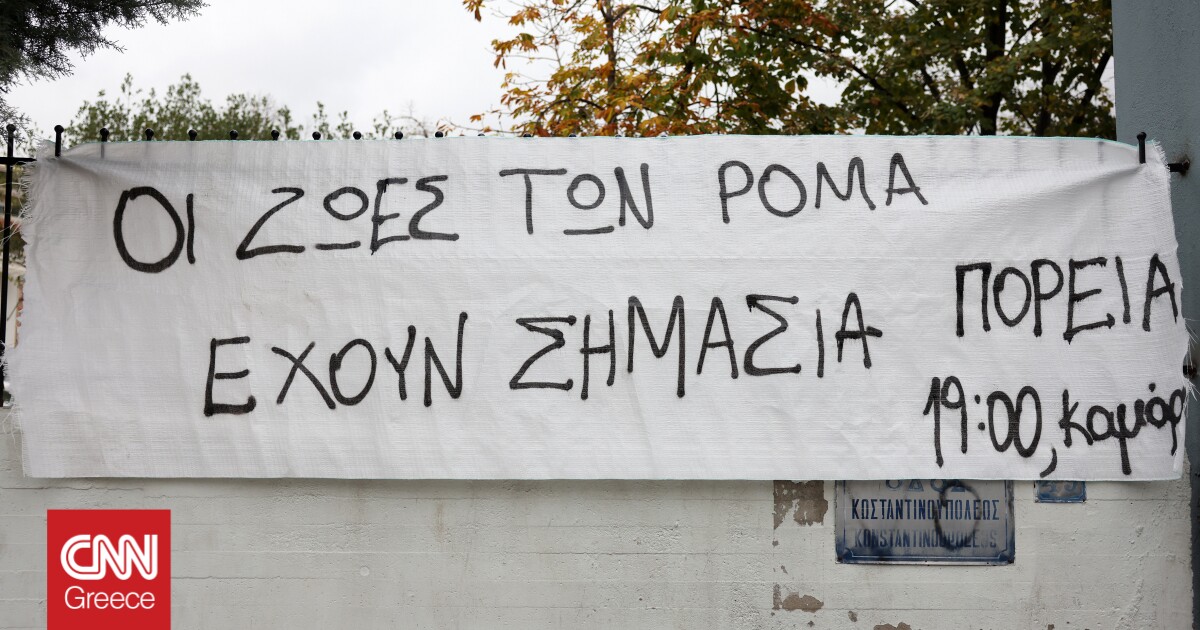 ΟΙ ΖΩΕΣ ΤΩΝ ΡΟΜΑ
ΕΧΟΥΝ ΣΗΜΑΣΙΑ
ΠΟΡΕΙΑ
19:00,
ΟΔΟΣ
ΚΩΣΤΑΝΤΙΝΟΥΠΟΛΕΩΣ
KONSTANTINOUPOLEOS
CNN
Greece